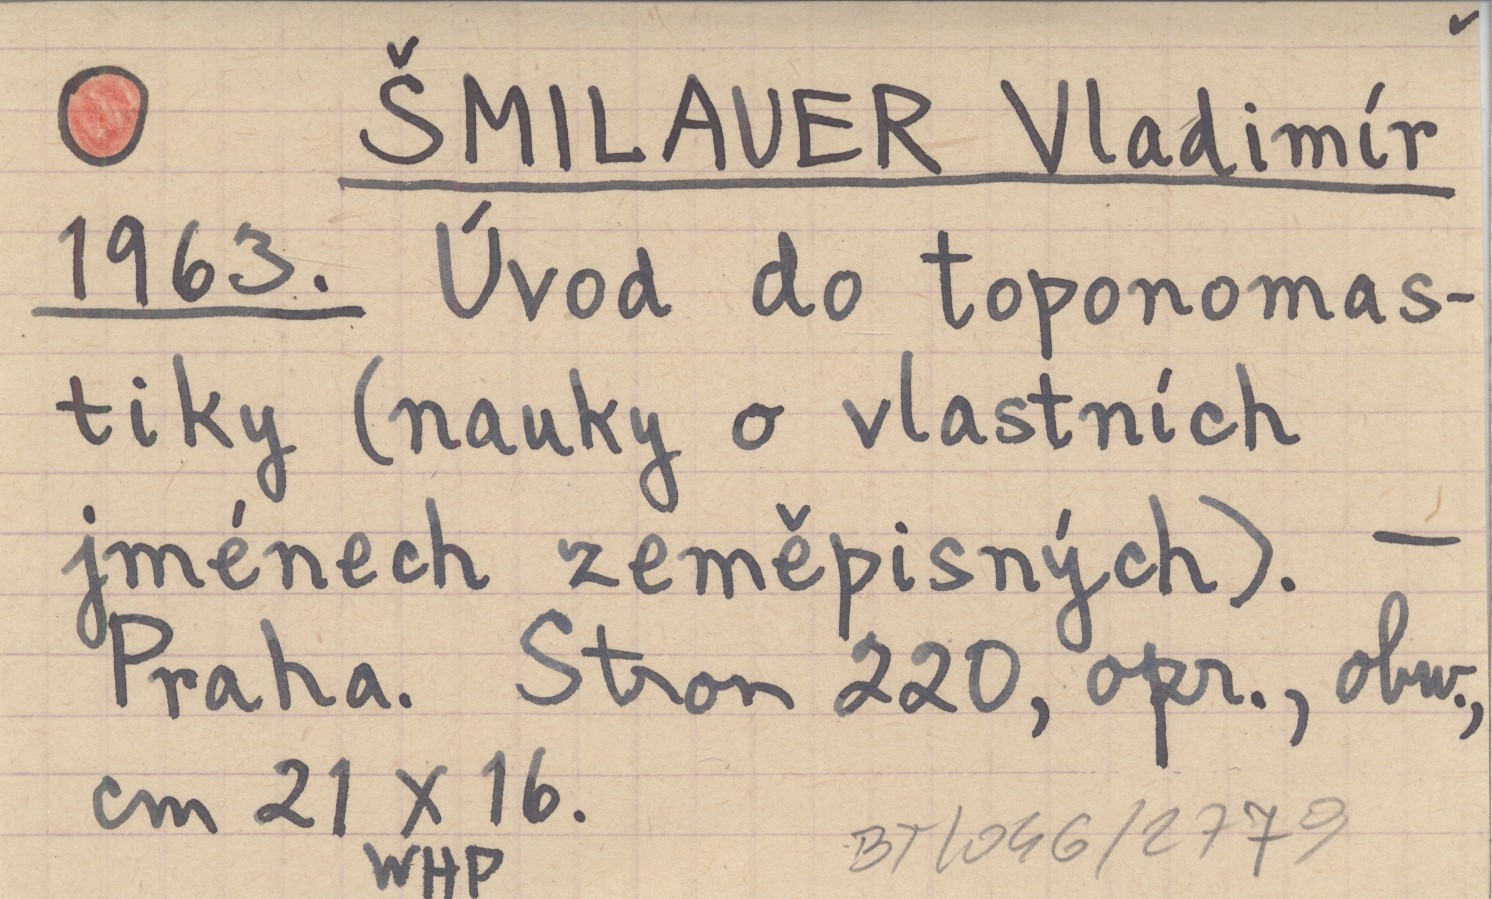 ŠMILAUER Vladimír
1963. Úvod do toponomas-
tiky (nauky o vlastních
jménech zeměpisných). —
Praha. Stron 220, opr., obw.,
cm 21 x 16.
WHP
BT/046/2779